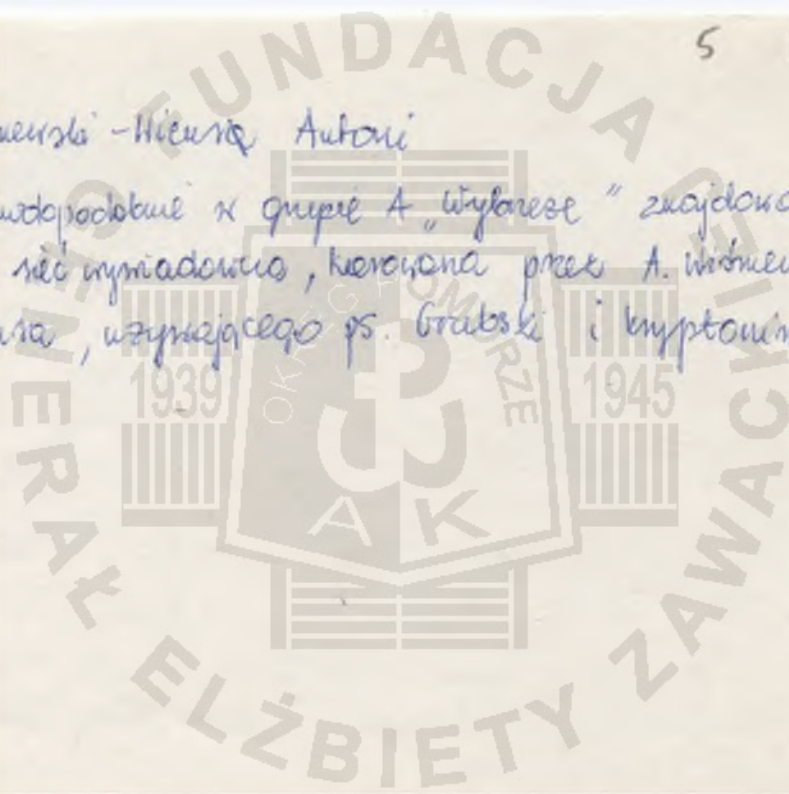 5
ewski-Wicusia Antoni
wdopodobnie w grupie A „Wybrzeże" znajdowa
sieć wywiadowcza, kierowana przez A. Wiśniew
usa, używającego ps. Grabski i kryptonim
FUNDACJA GENERAŁ ELŻBIETY ZAWACKIEJ
OKRĘG POMORZE
1939
1945
A K